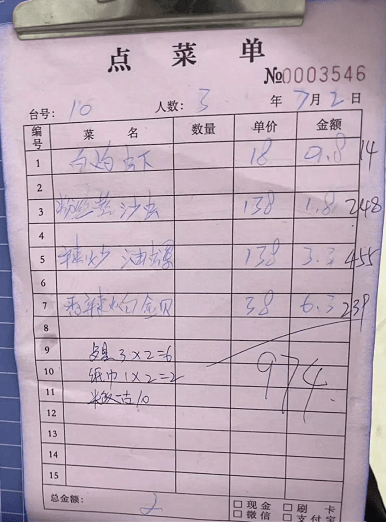 点菜单
№0003546
台号: 10 人数: 3 年 7月2日
编号 菜名 数量 单价 金额
1 白灼虾 18 0.8 14
2
3 粉丝蒸沙虫 138 1.8 248
4
5 辣炒油螺 138 3.3 455
6
7 香辣炒金贝 38 6.3 239
8
9 3×2=6
10 纸巾1×2=2 974
11 10
12
13
14
15
总金额: □现金 □刷卡
□微信 □支付宝